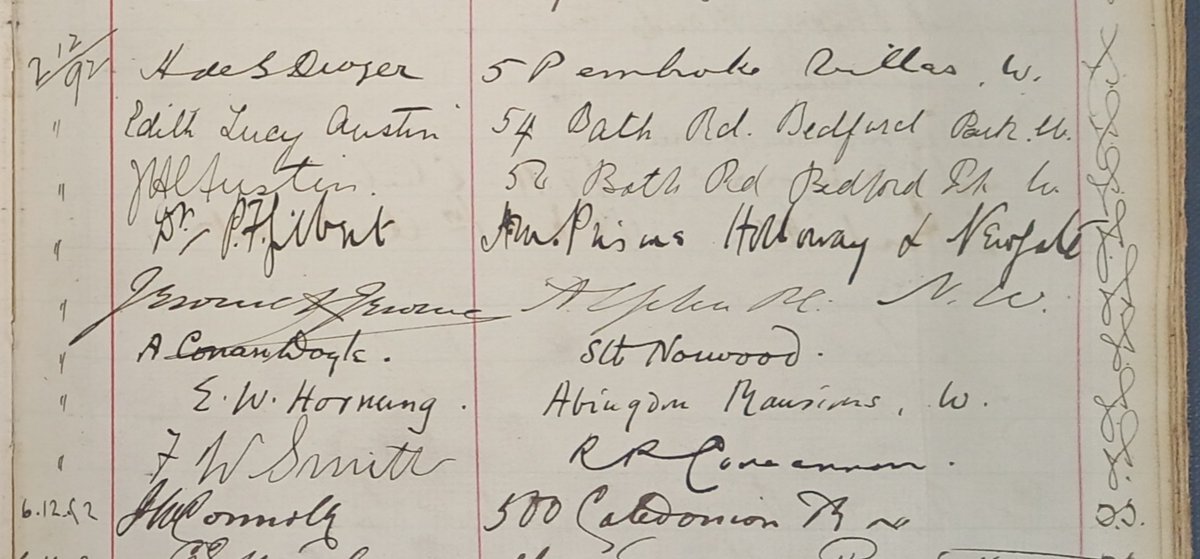 2/12/92 H de S Dwyer 5 Pembroke Villas, W.
" Edith Lucy Austin 54 Bath Rd. Bedford Park. W.
" Austin. Bath Rd Bedford Pk W.
" Dr. P. F. Gilbert H.M. Prisons Holloway & Newgate
" Jerome K Jerome Alpha Pl. N.W.
" A Conan Doyle. Sth Norwood.
" E. W. Hornung. Abingdon Mansions, W.
" F W Smith R R Concannon.
6.12.92 Connolly 500 Caledonian Rd